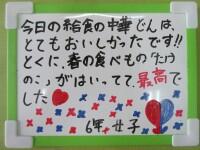 今日の給食の中華どんは、
とてもおいしかったです!!
とくに、春の食べもの「たけ
のこ」がはいってて、最高で
した
6年 女子